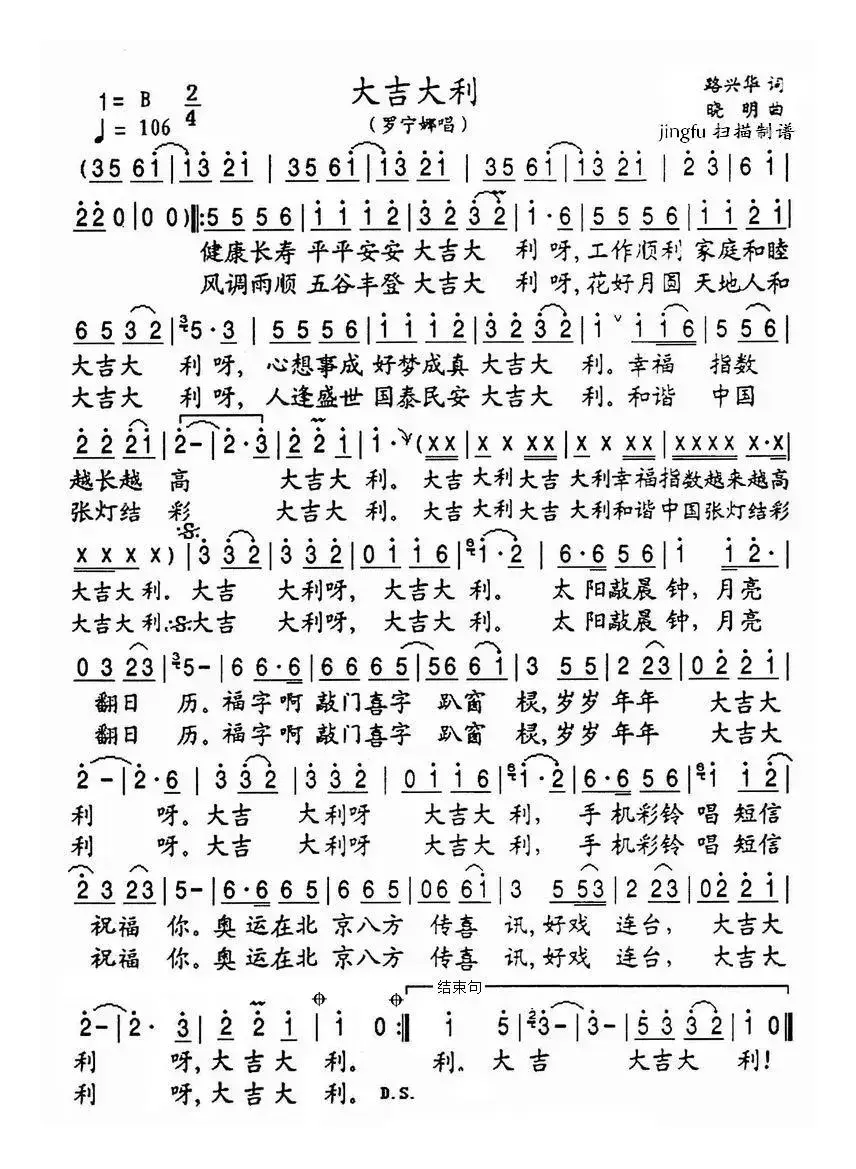 大吉大利
1= B 2/4
♩= 106
(罗宁娜唱)
路兴华 词
晓 明 曲
jingfu 扫描制谱
(35 61|13 21 | 35 61|13 21 | 35 61|13 21 | 2 3|6 1|
220|00)‖:5556|1112|3232|1·6|5556|1121|
健康长寿 平平安安 大吉大 利呀,工作顺利 家庭和睦
风调雨顺 五谷丰登 大吉大 利呀,花好月圆 天地人和
6532|5·3|5556|1112|3232|1 116|556|
大吉大 利呀,心想事成 好梦成真 大吉大 利。幸福 指数
大吉大 利呀,人逢盛世 国泰民安 大吉大 利。和谐 中国
2221|2-|2·3|221|1·(xx|x x xx|x x xx|xxxx x·x|
越长越 高 大吉大 利。大吉 大利大吉 大利幸福指数越来越高
张灯结 彩 大吉大 利。大吉 大利大吉 大利和谐中国张灯结彩
x x x x)|3 32|3 32|0116|1·2|6·656|1 12·|
大吉大利.大吉 大利呀,大吉大 利。 太阳敲晨 钟,月亮
大吉大利.大吉 大利呀,大吉大 利。 太阳敲晨 钟,月亮
0323|5-|66·6|6665|5661|3 55|2 23|0221|
翻日 历。福字啊 敲门喜字 趴窗 棂,岁岁 年年 大吉大
翻日 历。福字啊 敲门喜字 趴窗 棂,岁岁 年年 大吉大
2-|2·6|3 32|3 32|0116|1·2|6·656|1 12|
利 呀。大吉 大利呀 大吉大 利, 手机彩铃 唱 短信
利 呀。大吉 大利呀 大吉大 利, 手机彩铃 唱 短信
2323|5-|6·665|6665|0661|3 553|2 23|0221|
祝福 你。奥运在北 京八方 传喜 讯,好戏 连台, 大吉大
祝福 你。奥运在北 京八方 传喜 讯,好戏 连台, 大吉大
结束句
2-|2· 3|2 2 1|1 0:‖ 1 5|3-|3-|5332|1 0‖
利 呀,大吉大 利。 利。大吉 大吉大 利!
利 呀,大吉大 利。D.S.